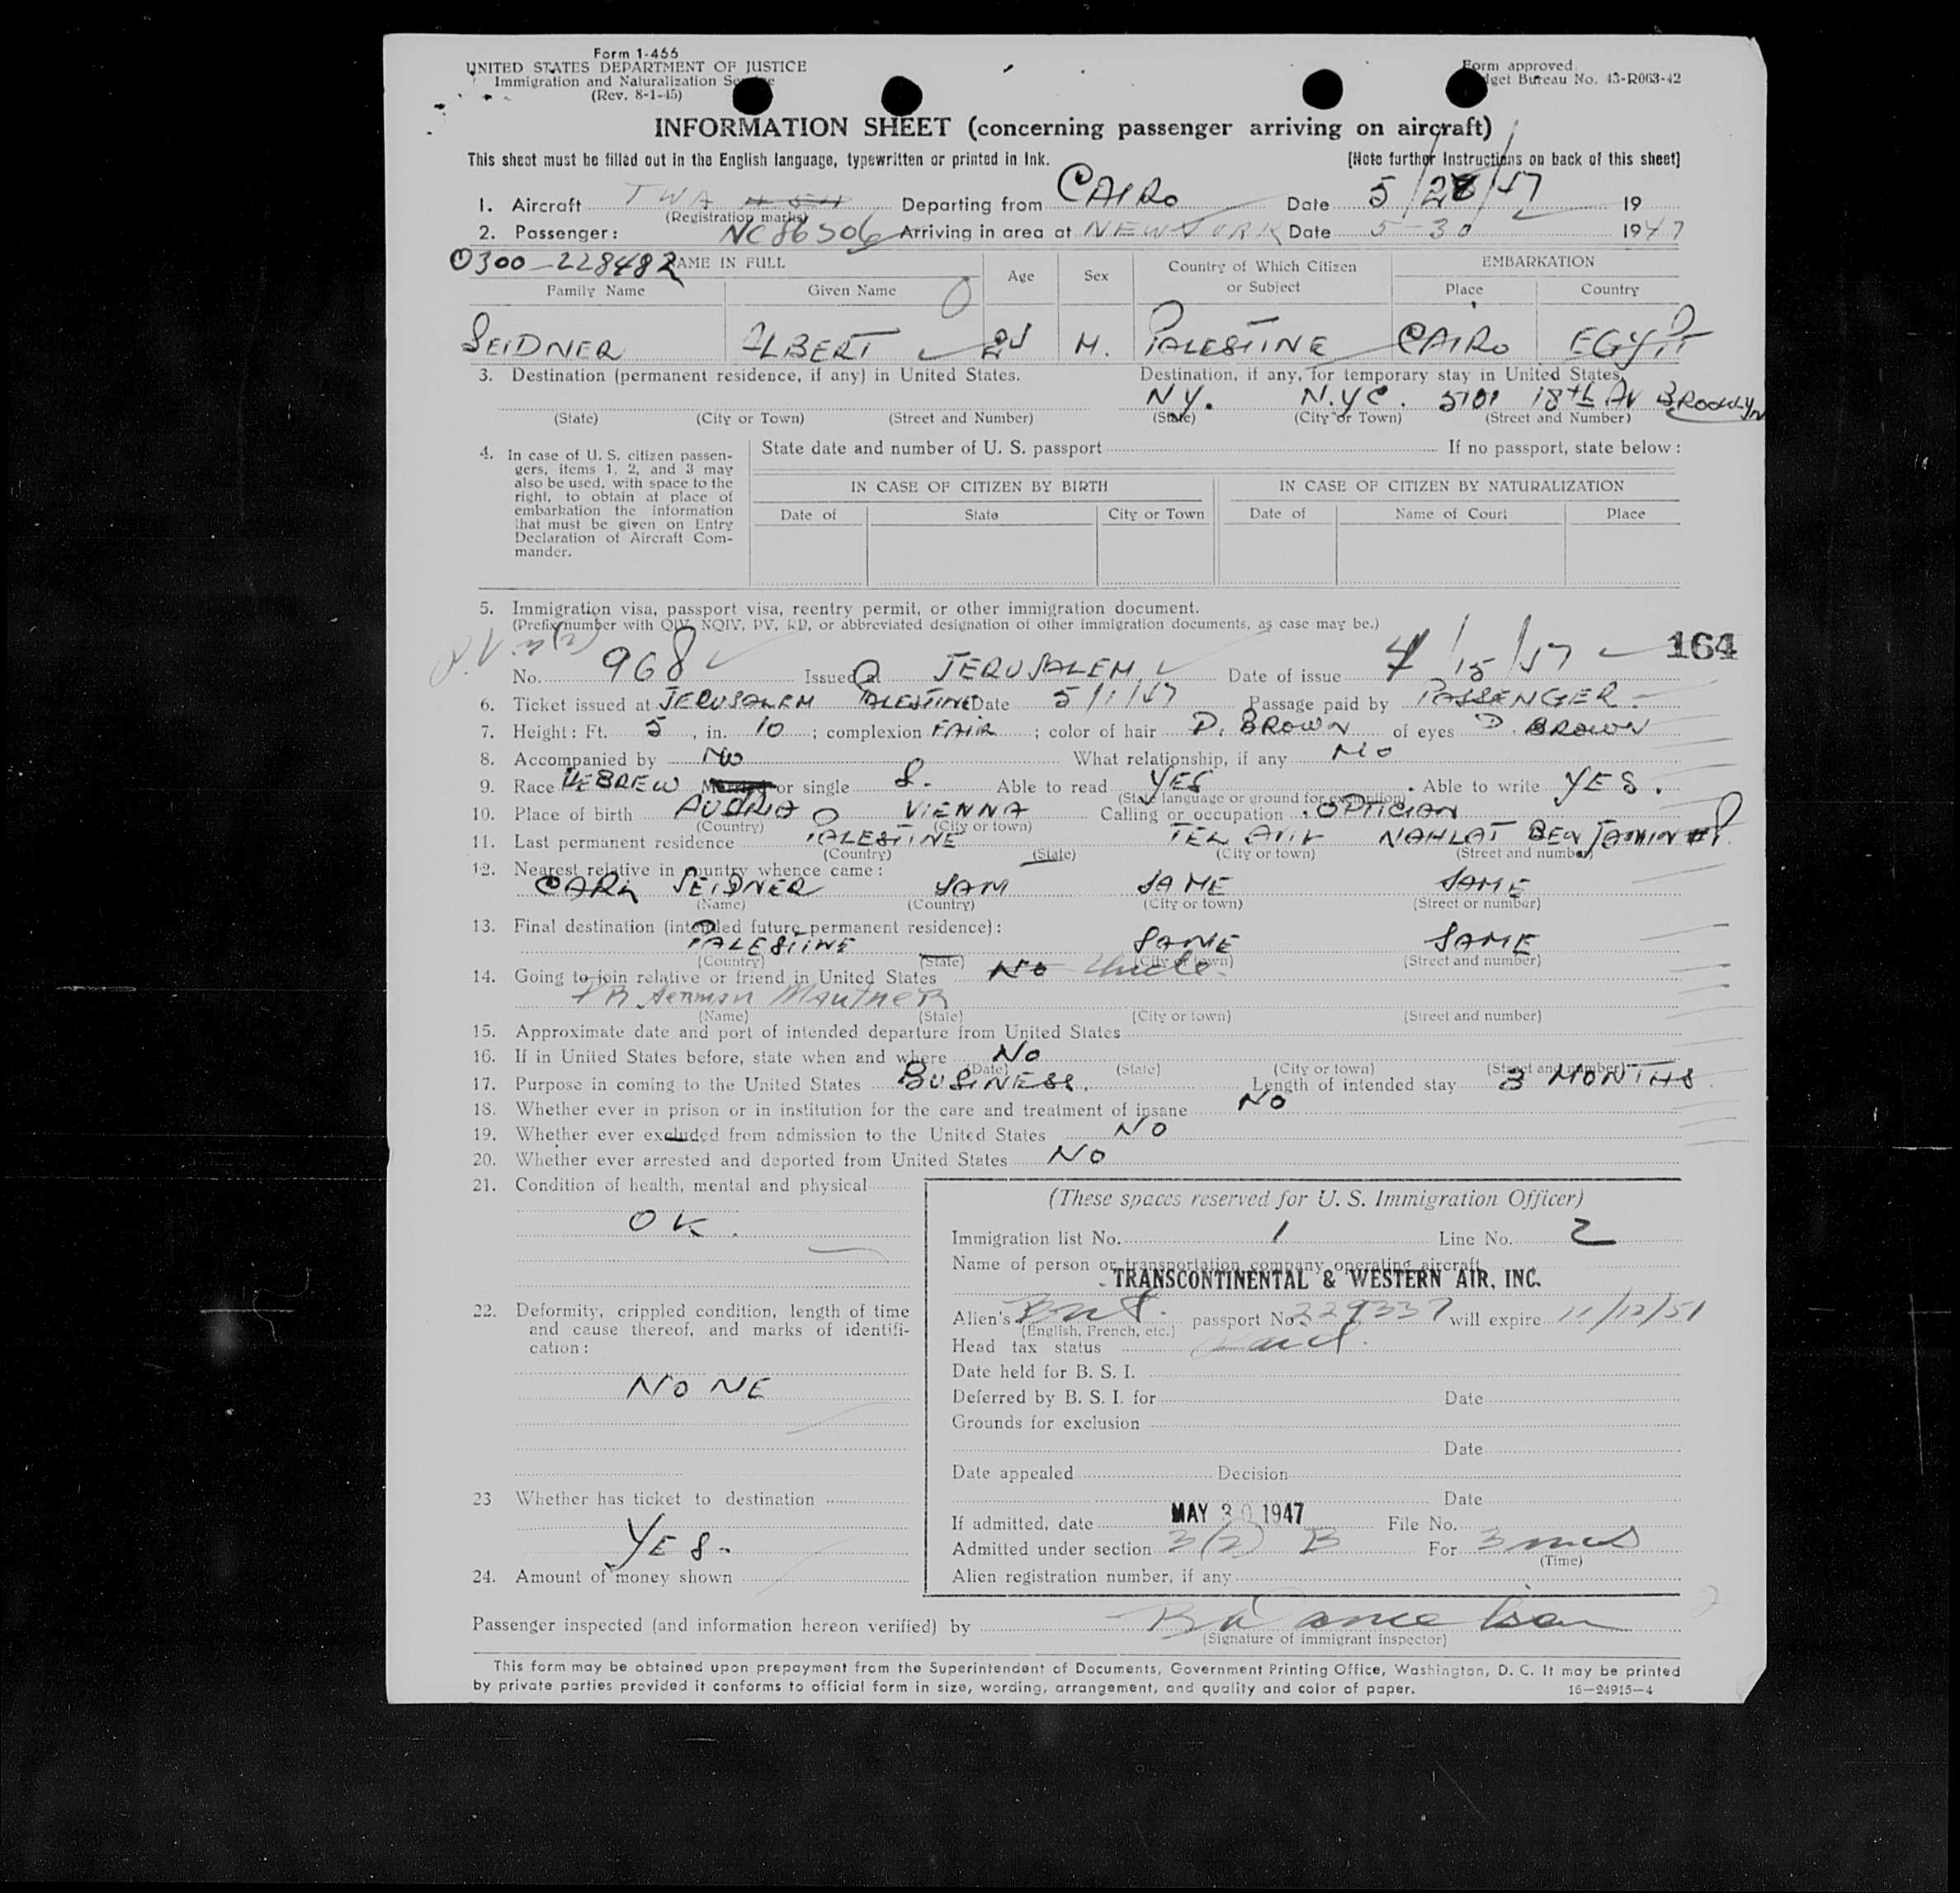 Form 1-466
UNITED STATES DEPARTMENT OF JUSTICE
Immigration and Naturalization
(Rev. 8-1-45)
Form approved.
Bureau No. 43-R063-42
INFORMATION SHEET (concerning passenger arriving on aircraft)
This sheet must be filled out in the English language, typewritten or printed in ink.
(Note further instructions on back of this sheet)
1. Aircraft TWA Departing from CAIRO Date 5/28/47 19
(Registration marks)
2. Passenger: NC86506 Arriving in area at NEW YORK Date 5-30 1947
0300-228482 NAME IN FULL Age Sex Country of Which Citizen or Subject EMBARKATION
Family Name Given Name Place Country
SEIDNER ALBERT M. PALESTINE CAIRO EGYPT
3. Destination (permanent residence, if any) in United States. Destination, if any, for temporary stay in United States.
NY. N.Y.C. 5101 18th AV BROOKLYN
(State) (City or Town) (Street and Number) (State) (City or Town) (Street and Number)
4. In case of U. S. citizen passen-
gers, items 1, 2, and 3 may
also be used, with space to the
right, to obtain at place of
embarkation the information
that must be given on Entry
Declaration of Aircraft Com-
mander.
State date and number of U. S. passport If no passport, state below:
IN CASE OF CITIZEN BY BIRTH IN CASE OF CITIZEN BY NATURALIZATION
Date of State City or Town Date of Name of Court Place
5. Immigration visa, passport visa, reentry permit, or other immigration document.
(Prefix number with QIV, NQIV, PV, RP, or abbreviated designation of other immigration documents, as case may be.)
P.V. 3(2)
164
No. 968 Issued at JERUSALEM Date of issue 4/15/47
6. Ticket issued at JERUSALEM PALESTINE Date 5/1/47 Passage paid by PASSENGER
7. Height: Ft. 5, in. 10; complexion FAIR; color of hair D. BROWN of eyes D. BROWN
8. Accompanied by NO What relationship, if any NO
9. Race HEBREW Married or single S. Able to read YES. Able to write YES.
(State language or ground for exemption)
10. Place of birth AUSTRIA VIENNA Calling or occupation OPTICIAN
(Country) (City or town)
11. Last permanent residence PALESTINE TEL AVIV NAHLAT BENJAMIN
(Country) (State) (City or town) (Street and number)
12. Nearest relative in country whence came:
CARL SEIDNER SAM SAME SAME
(Name) (Country) (City or town) (Street or number)
13. Final destination (intended future permanent residence):
PALESTINE SAME SAME
(Country) (State) (City or town) (Street and number)
14. Going to join relative or friend in United States NO Uncle
DR Herman Mautner
(Name) (State) (City or town) (Street and number)
15. Approximate date and port of intended departure from United States
16. If in United States before, state when and where NO
(Date) (State) (City or town) (Street and number)
17. Purpose in coming to the United States BUSINESS. Length of intended stay 3 MONTHS
18. Whether ever in prison or in institution for the care and treatment of insane NO
19. Whether ever excluded from admission to the United States NO
20. Whether ever arrested and deported from United States NO
21. Condition of health, mental and physical
OK.
22. Deformity, crippled condition, length of time
and cause thereof, and marks of identifi-
cation:
NONE
23 Whether has ticket to destination
YES.
24. Amount of money shown
(These spaces reserved for U. S. Immigration Officer)
Immigration list No. 1 Line No. 2
Name of person or transportation company operating aircraft
TRANSCONTINENTAL & WESTERN AIR, INC.
Alien's Brit. passport No. 229337 will expire 11/12/51
(English, French, etc.)
Head tax status Paid.
Date held for B. S. I.
Deferred by B. S. I. for Date
Grounds for exclusion
Date
Date appealed Decision
Date
If admitted, date MAY 30 1947 File No.
Admitted under section 3(2) B For 3 mos
(Time)
Alien registration number, if any
Passenger inspected (and information hereon verified) by
(Signature of immigrant inspector)
This form may be obtained upon prepayment from the Superintendent of Documents, Government Printing Office, Washington, D. C. It may be printed
by private parties provided it conforms to official form in size, wording, arrangement, and quality and color of paper. 16—24915-4